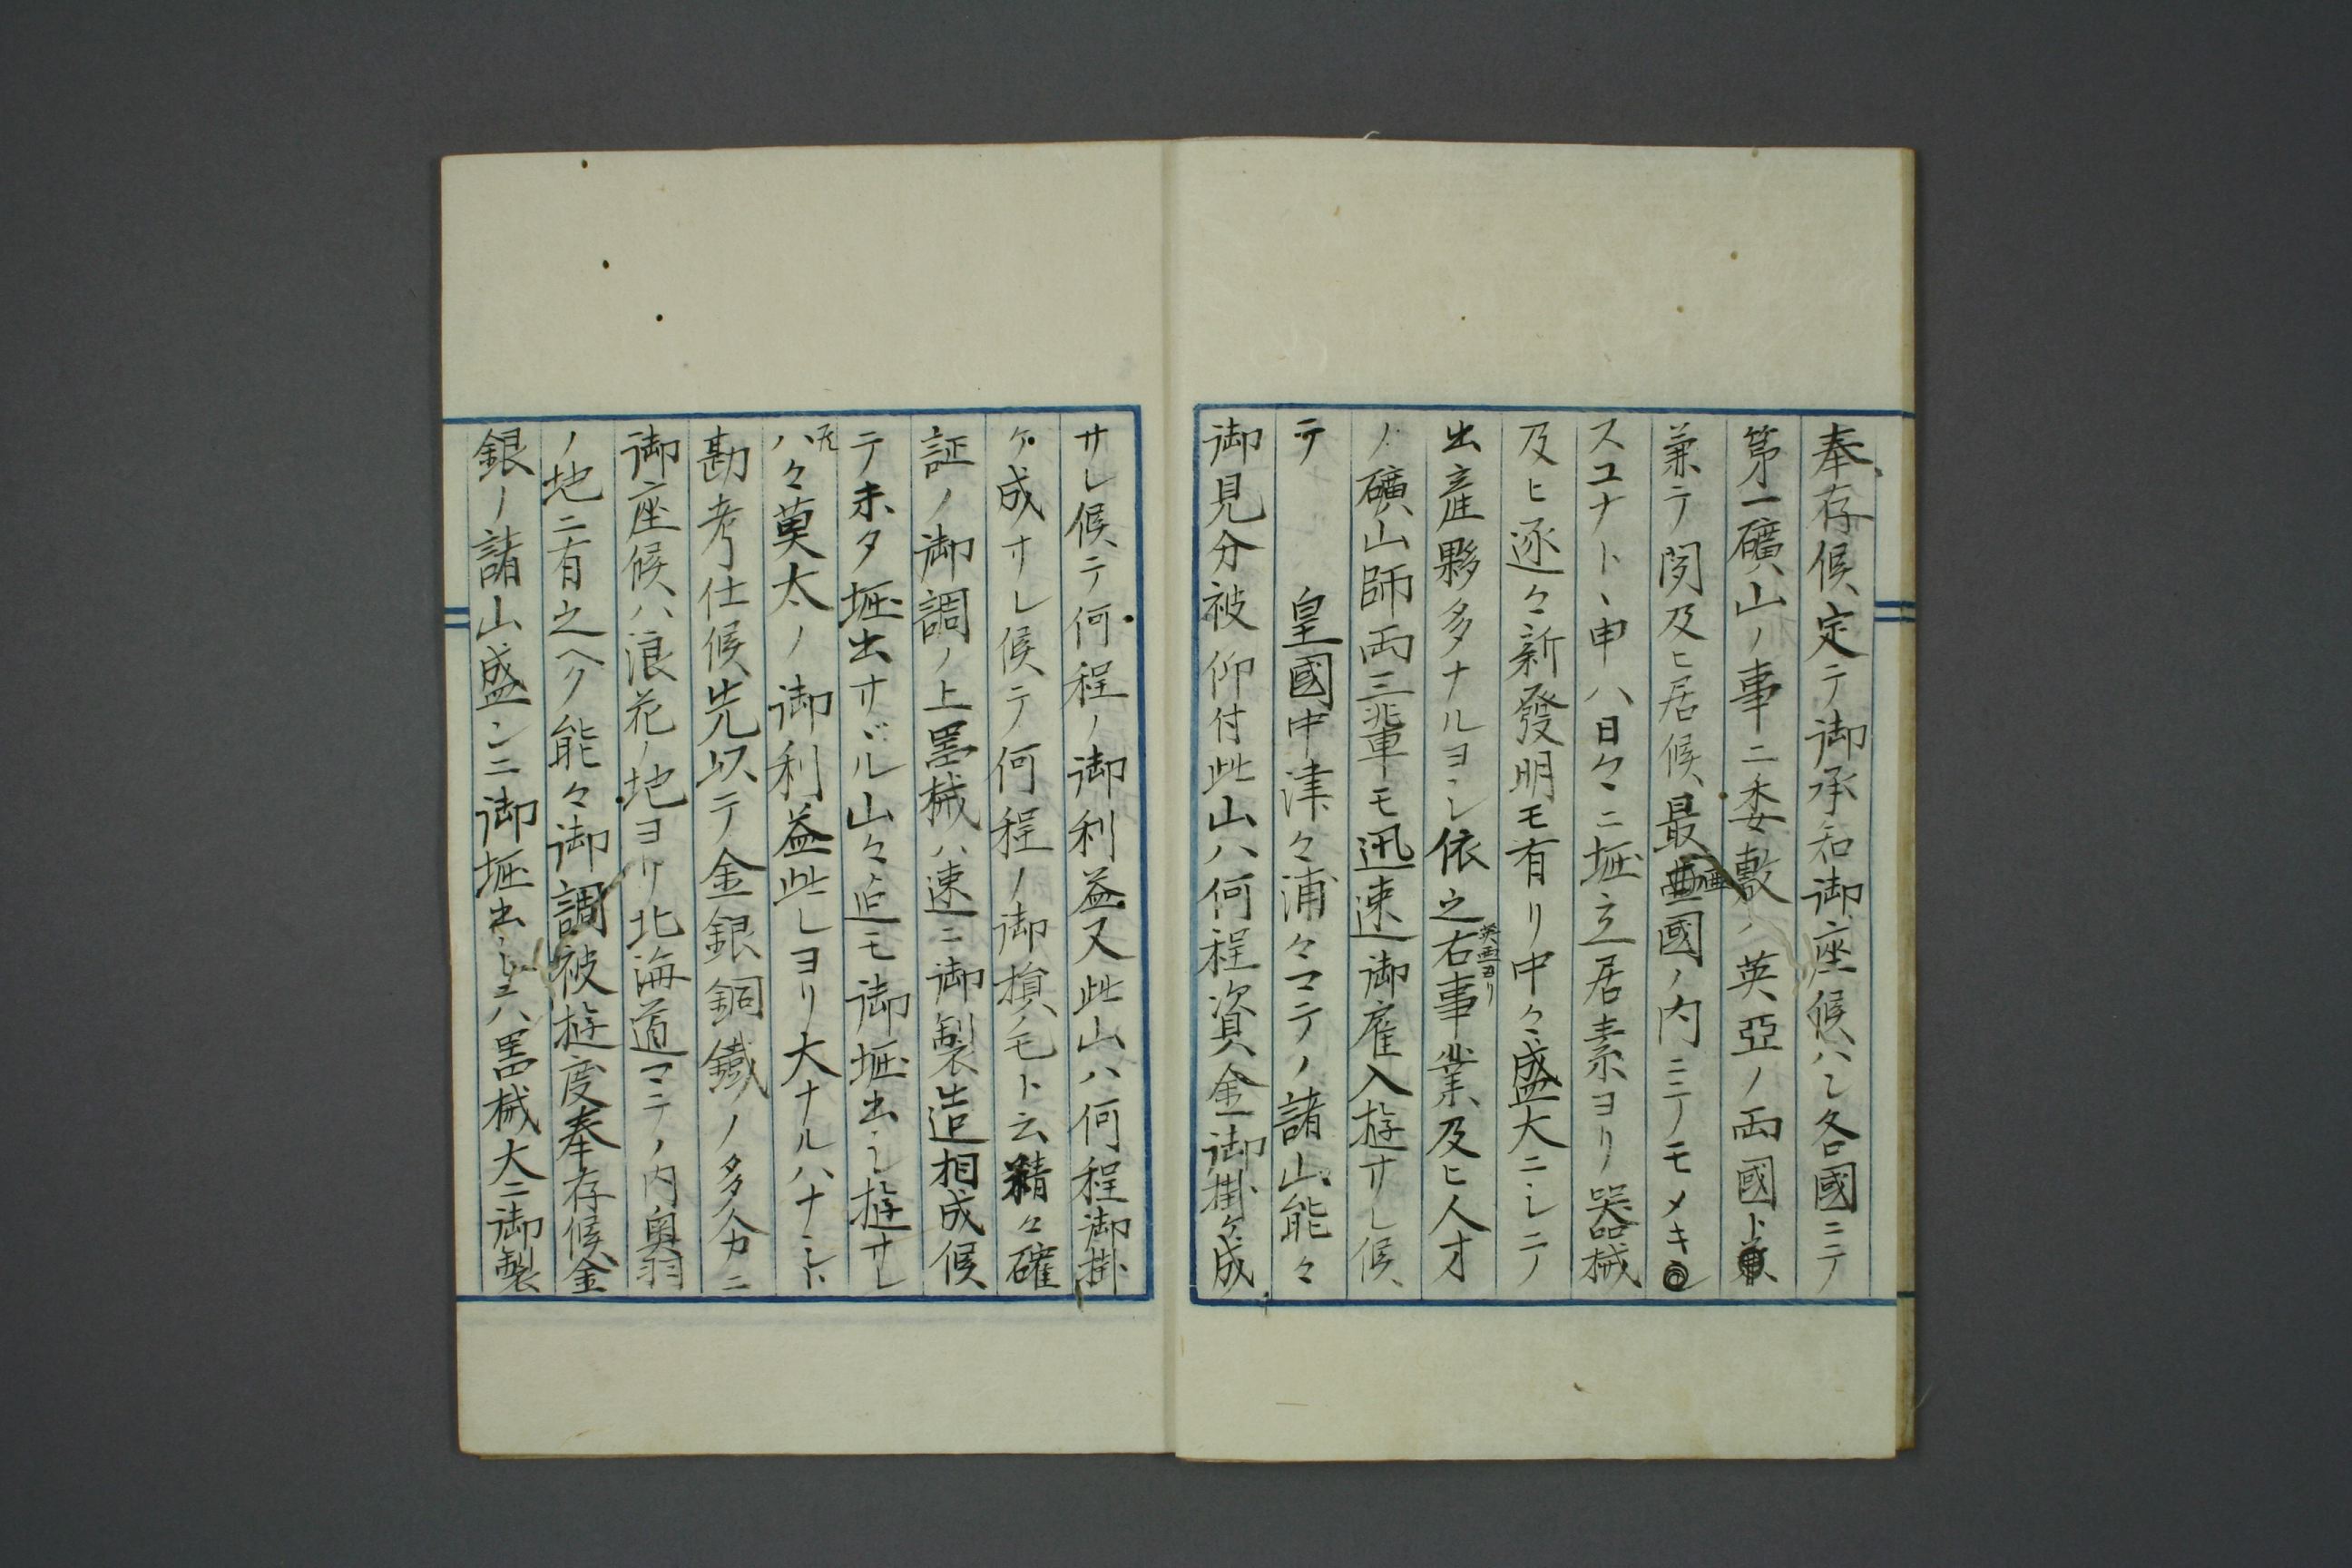 奉存候定テ御承知御座候ハン各國ニテ
第一礦山ノ事ニ委敷ノ英亞ノ両國ト
兼テ聞及ヒ居候最亜國ノ内ニテモメキ
スユナト丶申ハ日々ニ堀立居素ヨリ器械
及ヒ逐々新發明モ有リ中々盛大ニシテ
出産夥多ナルヨシ依之右事業及ヒ人才
英亜ヨリ
ノ礦山師両三輩モ迅速御雇入遊サレ候
テ　皇國中津々浦々マテノ諸山能々
御見分被仰付此山ハ何程資金御掛ケ成
サレ候テ何程ノ御利益又此山ハ何程御掛
ケ成サレ候テ何程ノ御損モト云精々確
証ノ御調ノ上噐械ハ速ニ御製造相成候
テ未タ堀出サヾル山々迠モ御堀出シ遊サレ
ハ々莫太ノ御利益此レヨリ大ナルハナシト
勘考仕候先以テ金銀銅鐵ノ多分ニ
御座候ハ浪花ノ地ヨリ北海道マテノ内奥羽
ノ地ニ有之ヘク能々御調被遊度奉存候金
銀ノ諸山盛ンニ御堀出シ噐械大ニ御製